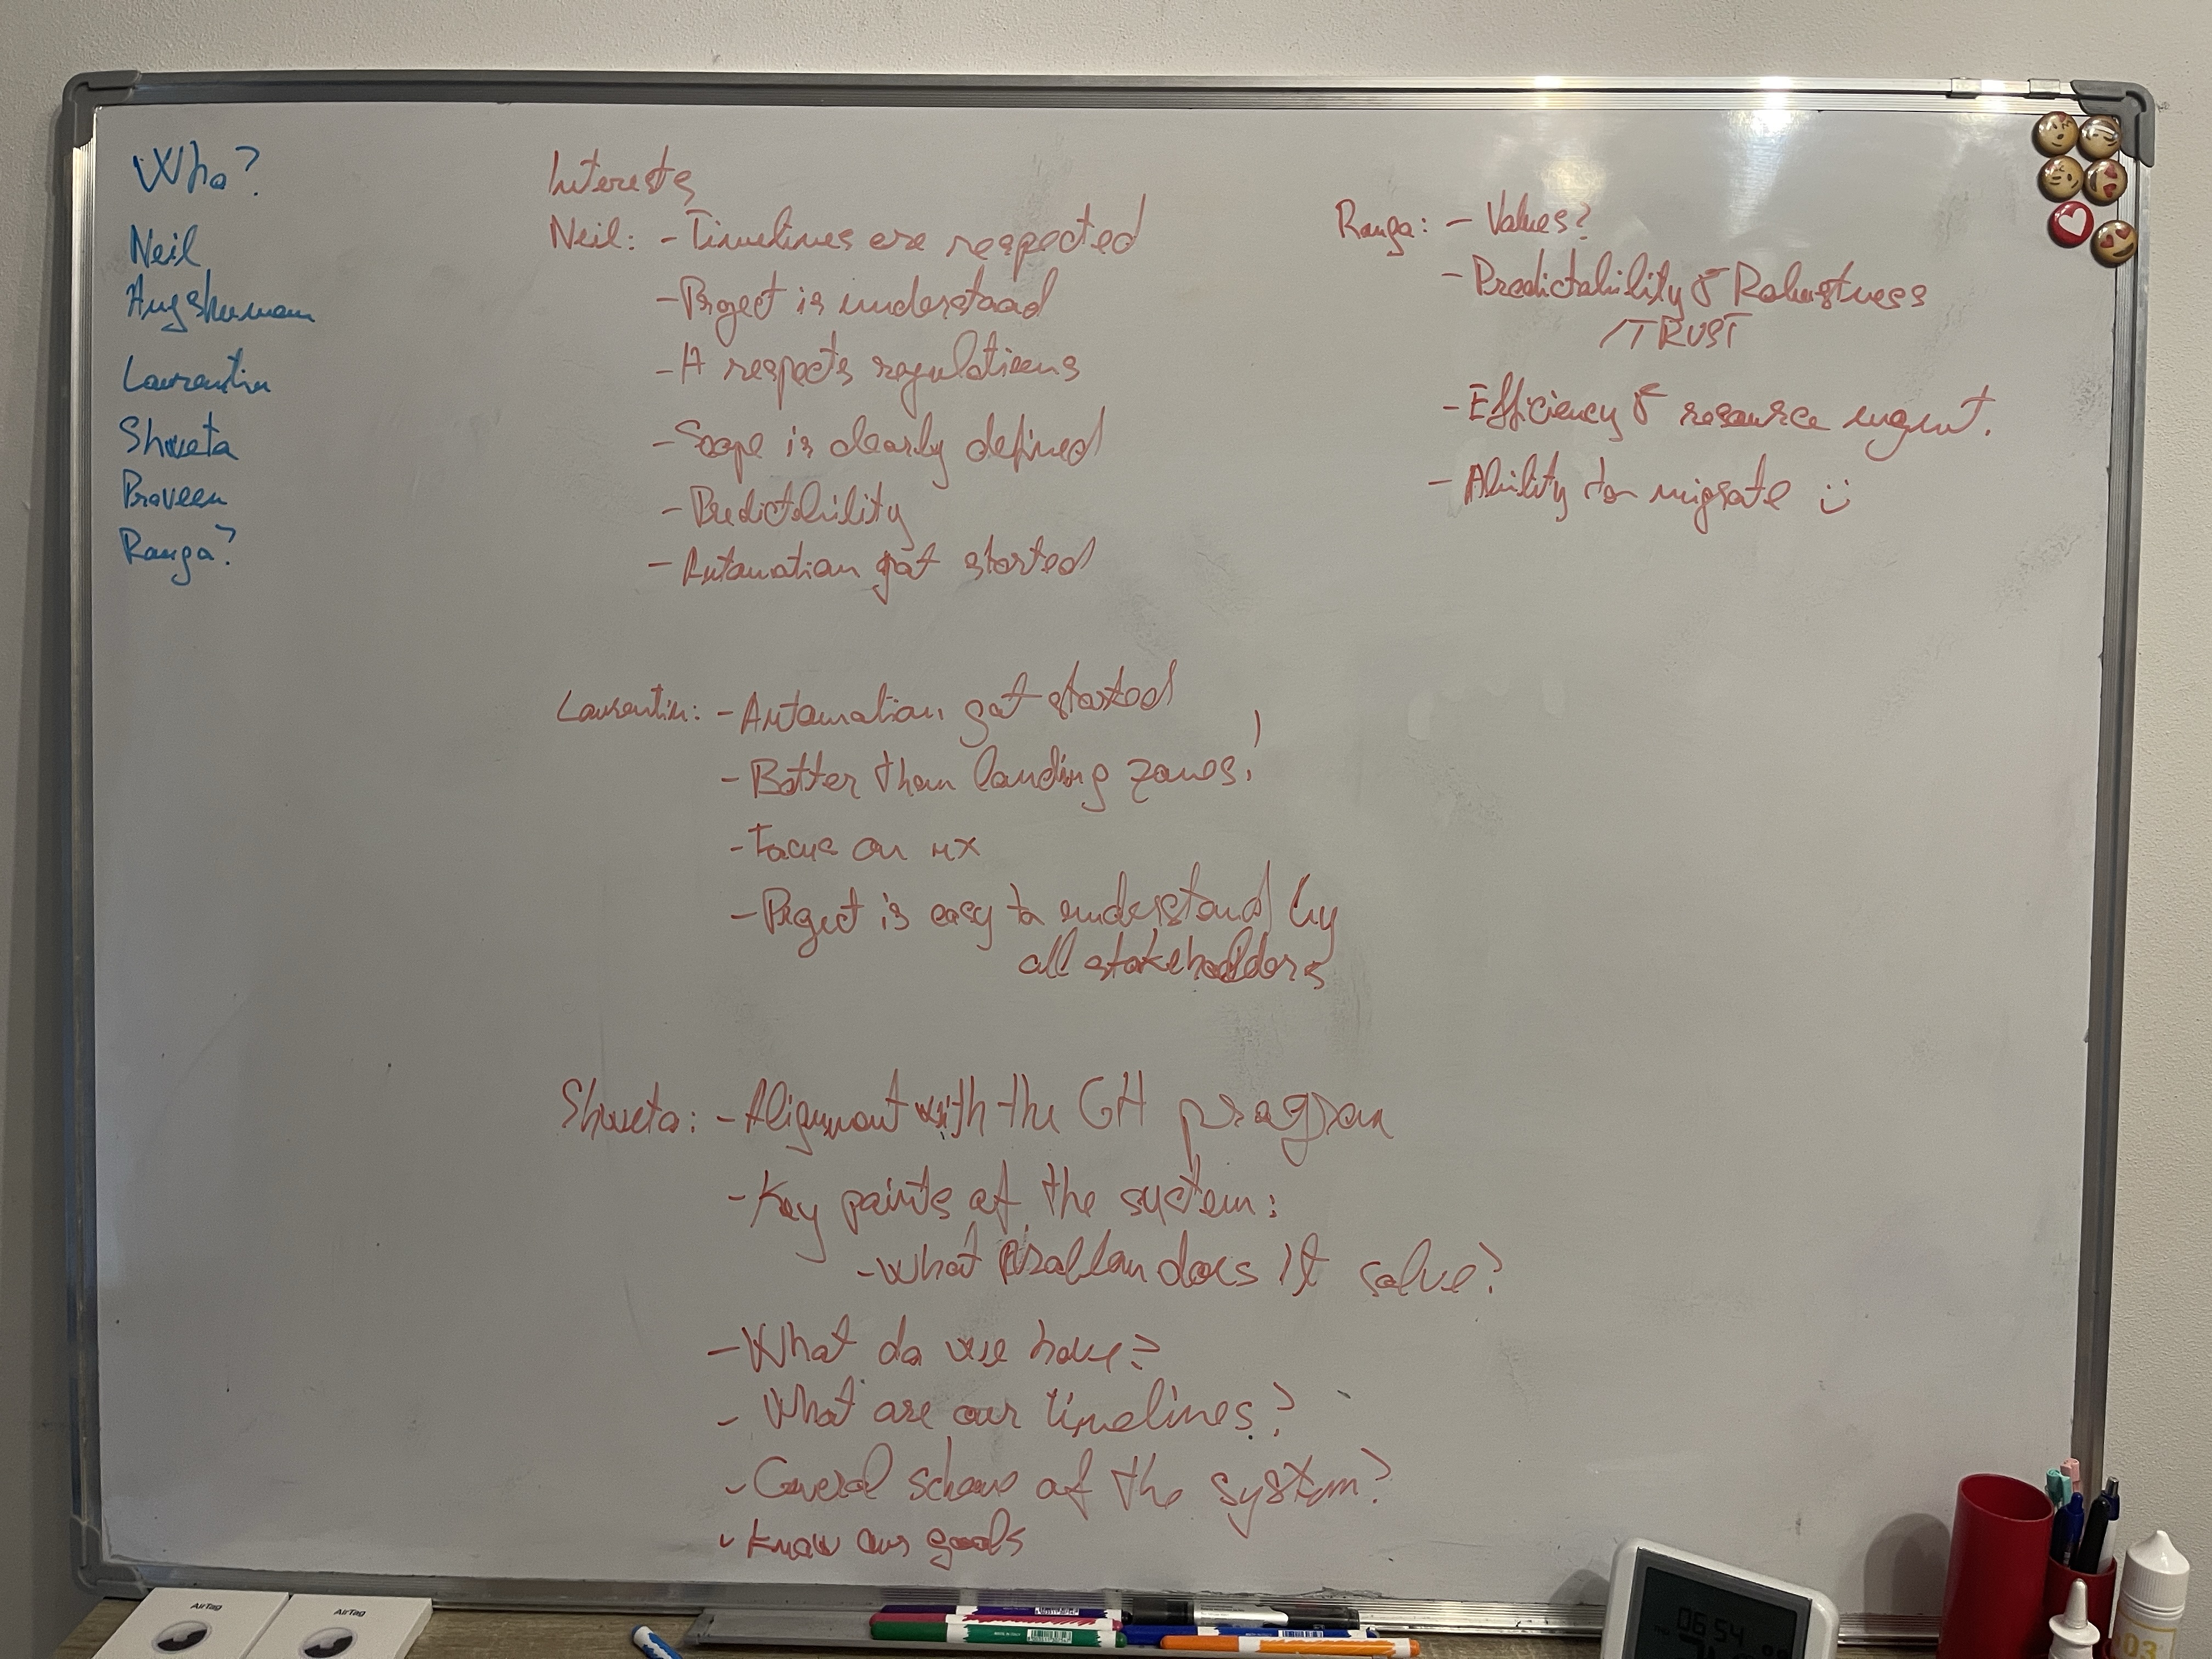 Who?
Neil
Angshuman
Laurentiu
Shweta
Praveen
Ranga?
Interests
Neil: - Timelines are respected
- Project is understood
- A respects regulations
- Scope is clearly defined
- Predictability
- Automation got started
Laurentiu: - Automation got started
- Better than landing zones!
- Focus on ux
- Project is easy to understand by
all stakeholders
Shweta: - Alignment with the GH program
- Key points of the system:
- What problem does it solve?
- What do we have?
- What are our timelines?
- General scheme of the system?
- Know our goals
Ranga: - Values?
- Predictability & Robustness
/TRUST
- Efficiency & resource mgmt.
- Ability to migrate :)
AirTag
AirTag
06:54
03